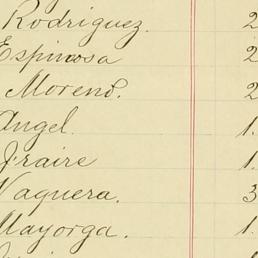 Rodriguez. 2
Espinosa 2
Moreno. 2
Angel. 1.
Fraire 1.
Vaquera. 3
Mayorga. 1.